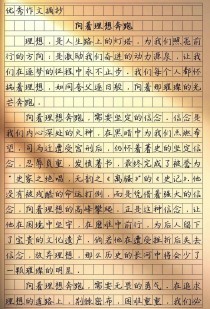 优秀作文摘抄
向着理想奔跑
理想,是人生路上的灯塔,为我们照亮前
行的方向;是激励我们奋进的动力源泉,让我
们在逐梦的征程中永不止步。我们每个人都怀
揣着理想,如同夸父追日般,向着那璀璨的光
芒奔跑。
向着理想奔跑,需要坚定的信念,信念是
我们内心深处的火种,在黑暗中为我们点燃希
望。司马迁遭受宫刑后,仍怀着著史的坚定信
念,忍辱负重,发愤著书,最终完成了被誉为
“史家之绝唱,无韵之《离骚》”的《史记》。他
没有被残酷的命运打倒,而是凭借着强大的信
念,向着理想的高峰攀登。正是这种信念,让
他在困境中坚守,在磨难中前行,为后人留下
了宝贵的文化遗产。倘若他在遭受挫折后失去
信念,放弃理想,那么历史的长河中将会少了
一颗璀璨的明星。
向着理想奔跑,需要无畏的勇气。在追求
理想的道路上,荆棘密布,困难重重,我们必